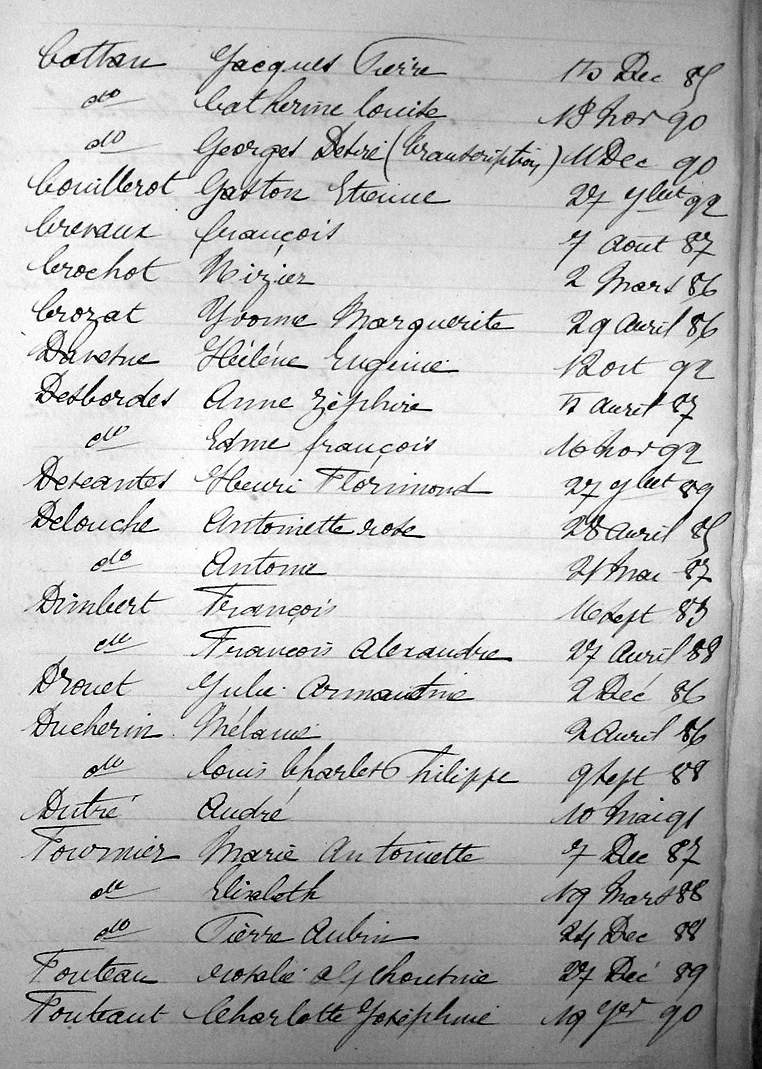 Cottan Jacques Pierre 15 Dec 85
do Catherine Louise 18 nov 90
do Georges Désiré (transcription) 11 Dec 90
Couillerot Gaston Etienne 27 Jllet 92
Crevaux François 7 Août 87
Crochot Nizier 2 Mars 86
Crozat Yvonne Marguerite 29 Avril 86
Davesne Hélène Eugénie 12 oct 92
Desbordes Anne Zéphire Avril 87
do Edme François 16 nov 92
Henri Florimond 27 Jllet 89
Delouche Antoinette rose 28 Avril 85
do 21 Mai 87
Dimbert François 16 Sept 83
do François Alexandre 27 Avril 88
Drouet Julie Armantine 2 Déc 86
Ducherin Mélanie 2 Avril 86
do Louis Charles Philippe 9 Sept 88
Dutré André 10 Mai 91
Fournier Marie Antoinette 7 Dec 87
do Elisabeth 19 Mars 88
do Pierre Aubin 24 Dec 88
Fouteau 27 Déc 89
Fouteaut Charlotte Joséphine 19 90